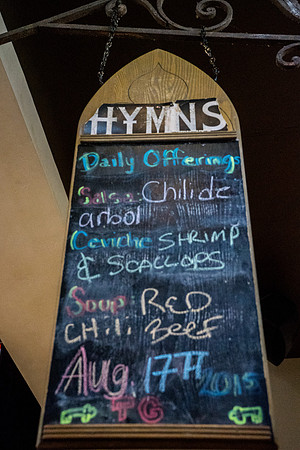 HYMNS
Daily Offerings
Salsa: Chili de
arbol
Ceviche SHRIMP
& SCALLOPS
Soup RED
CHILI BEEF
Aug. 17TH 2015
TG